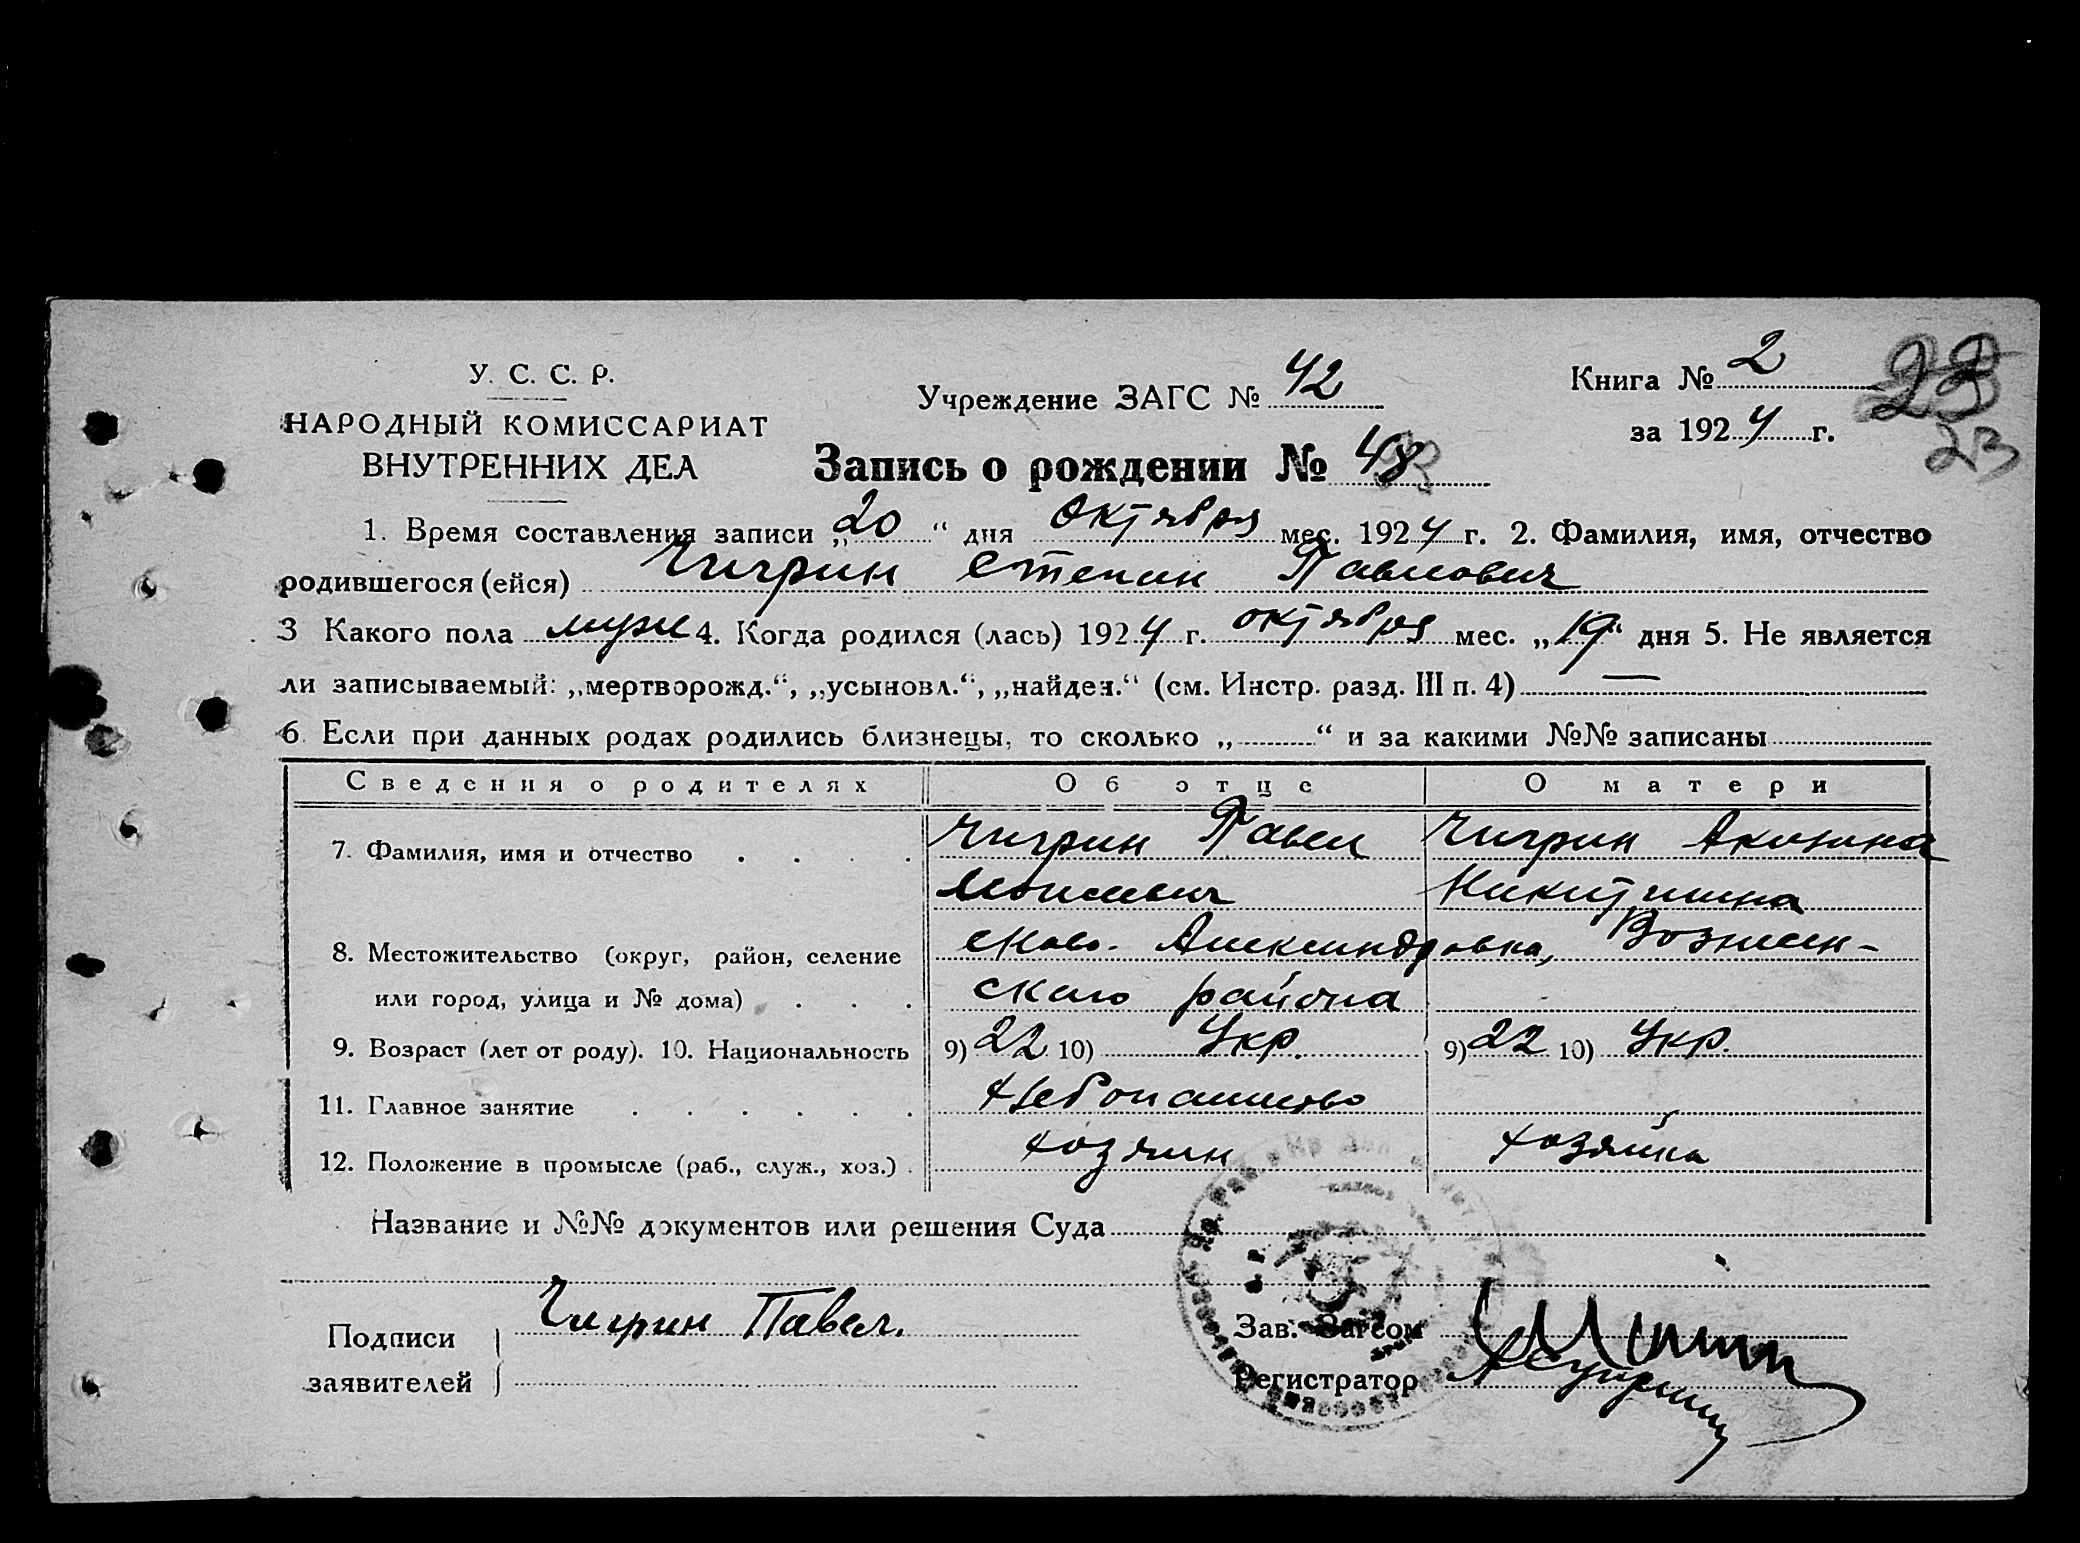 У. С. С. Р.
НАРОДНЫЙ КОМИССАРИАТ
ВНУТРЕННИХ ДЕЛ
Учреждение ЗАГС № 42
Книга № 2
за 1924 г.
23
Запись о рождении № 48
1. Время составления записи „20“ дня Октября мес. 1924 г. 2. Фамилия, имя, отчество
родившегося (ейся) Чигрин Степан Павлович
3 Какого пола муж 4. Когда родился (лась) 1924 г. октября мес. „19“ дня 5. Не является
ли записываемый: „мертворожд.“, „усыновл.“, „найден.“ (см. Инстр. разд. III п. 4) —
6. Если при данных родах родились близнецы, то сколько „ “ и за какими №№ записаны
Сведения о родителях Об отце О матери
7. Фамилия, имя и отчество Чигрин Павел Чигрин Акилина
Моисеевич Никитишна
8. Местожительство (округ, район, селение Александровка, Вознесен-
или город, улица и № дома) ского района
9. Возраст (лет от роду). 10. Национальность 9) 22 10) Укр. 9) 22 10) Укр.
11. Главное занятие Хлебопашество
12. Положение в промысле (раб., служ., хоз.) хозяин хозяйка
Название и №№ документов или решения Суда
Подписи заявителей Чигрин Павел.
Зав. Загсом
Регистратор